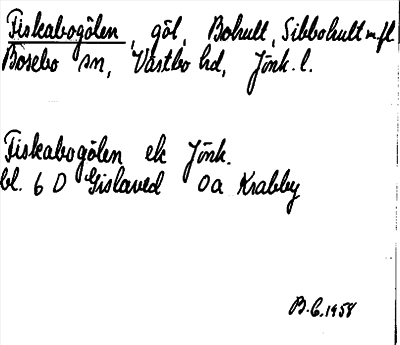 Fiskabogölen, göl, Bohult, Sibbohult m fl
Bosebo sn, Västbo hd, Jönk. l.
Fiskabogölen ek Jönk.
bl. 6 D Gislaved 0a Krabby
B.G. 1958